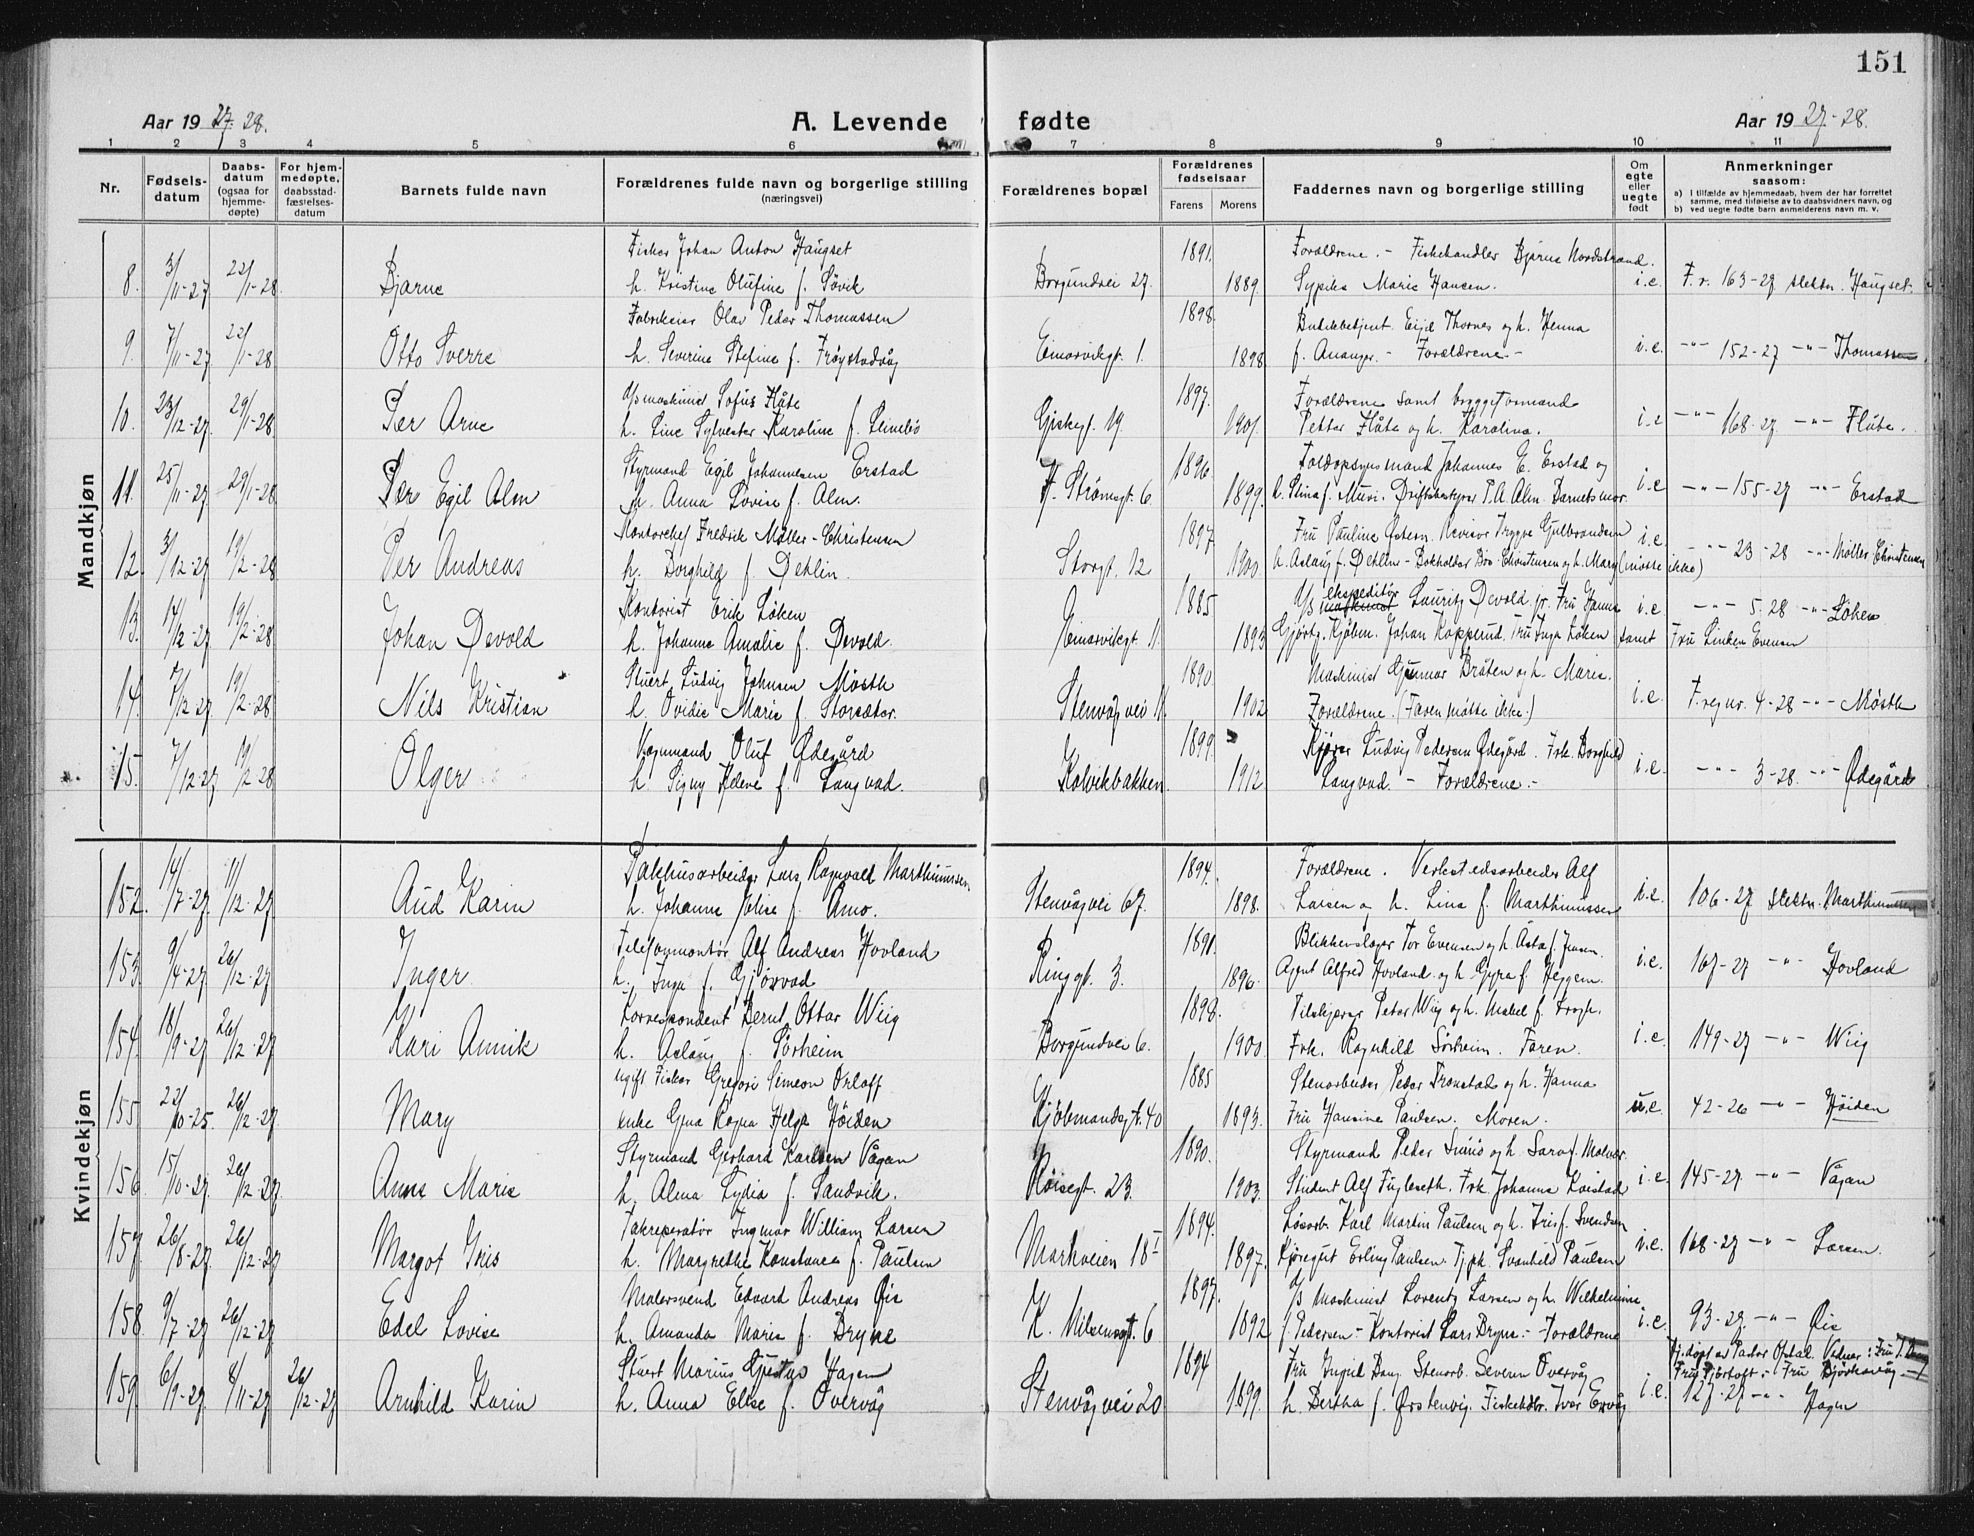 151
Aar 1927-28.
A. Levende fødte
Aar 1927-28.
1 2 3 4 5 6 7 8 9 10 11
Nr.
Fødsels-
datum
Daabs-
datum
(ogsaa for
hjemme-
døpte)
For hjem-
medøpte,
daabsstad-
fæstelses-
datum
Barnets fulde navn
Forældrenes fulde navn og borgerlige stilling
(næringsvei)
Forældrenes bopæl
Forældrenes
fødselsaar
Farens
Morens
Faddernes navn og borgerlige stilling
Om
egte
eller
uegte
født
Anmerkninger
saasom:
a) I tilfælde av hjemmedaab, hvem der har forrettet
samme, med tilføielse av to daabsvidners navn, og
b) ved uegte fødte barn anmelderens navn m. v.
Mandkjøn
Fisker Johan Anton Haugset 1891. Forældrene. - Fiskehandler Bjarne Nordstrand.
8. 3/11-27 22/1-28 Bjarne h. Kristine Olufine f. Søvik Borgundvei 27. 1889. Sypike Marie Hansen. i.e. F.r. 163-27 slektsn. Haugset.
Fabrikeier Olav Peder Thomassen 1898. Butikbetjent Eijel Thornes og h. Henna
9. 7/11-27 22/1-28 Otto Sverre h. Severine Stefine f. Frøystadvåg Einarvikgt. 1. 1898 f. Ananger. - Forældrene - i.e. -"- 152-27 -"- Thomassen
maskinist Sofus Flåte 1897. Forældrene samt bryggeformand
10. 23/12-27. 29/1-28 Per Arne h. Line Sylvester Karoline f. Leinebø Giskegt. 19. 1901. Petter Flåte og h. Karolina. i.e -"- 168-27 -"- Flåte.
Styrmand Egil Johannesen Erstad 1896. Johannes E. Erstad og
11. 25/11-27 29/1-28 Per Egil Alm h. Anna Lovise f. Alm. Strømsgt. 6. 1899. h. Stina f. Driftsbestyrer T.A. Alm. Barnets mor. i.e -"- 155-27 -"- Erstad
Kontorchef Fredrik Møller-Christensen 1897. Fru Pauline Østern. Revisor Trygve Gulbrandsen
12. 3/12-27 19/2-28 Per Andreas h. Borghild f. Dehlin. Storgt. 12 1900 h. Aslaug f. Dehlin - Christensen og h. Mary (møtte ikke) i.e. -"- 23-28 -"- Møller Christensen
Kontorist Erik Løken 1885 ekspeditør Lauritz Devold jr. Fru Hanna
13. 14/12-27 19/2-28 Johan Devold h. Johanne Amalie f. Devold. Nemarvikgt. 11. 1893 Kjøbm. Johan Fru Inga Løken samt i.e -"- 5-28 -"- Løken
Fru Linken Evensen
Stuert Ludvig Johnsen Møsth 1890. Maskinist Gunnar Bråten og h. Marie.
14. 7/12-27. 19/2-28 Nils Kristian h. Ovidie Marie f. Storsæter. Stenvågvei 11. 1902 Forældrene. (Faren møtte ikke.) i.e. F.reg nr. 4-28 -"- Møsth
Vognmand Oluf Ødegård 1899. Kjører Ludvig Pedersen Ødegård. Frk. Borghild
15. 7/12-27 19/2-28 Olger h. Signy Helene f. Langvad. Kolvikbakken 1912. Langvad. - Forældrene. - i.e. -"- 3-28. -"- Ødegård
Kvindekjøn
Pakhusarbeider Lars Ragnvald Marthinussen 1894. Forældrene. Verkstedsarbeider Alf
152. 14/7-27. 11/12-27 Aud Karin h. Johanne Jolise f. Amo. Stenvågvei 67. 1898. Larsen og h. Lina f. Marthinussen i.e. 106-27 slektsn. Marthinussen
Telefonmontør Alf Andreas Hovland 1891. Blikkenslager Tor Evensen og h. Asta f. Jensen.
153. 9/4-27. 26/12-27 Inger h. Inga f. Gjørvad Ringgt. 3. 1896. Agent Alfred Hovland og h. Gyra f. Heggem. i.e. 167-27 -"- Hovland
Korrespondent Bernt Ottar Wiig 1898. Peter Wiig og h. Makel f.
154. 18/9-27 26/12-27 Kari Annik h. Aslaug f. Sørheim Borgundvei 6. 1900. Frk. Ragnhild Sørheim. Faren. i.e. 149-27 -"- Wiig
ugift Fisker Gregori Simeon Orloff 1885 Stenarbeider Peder Tronstad og h. Hanna
155 22/10-25. 26/12-27 Mary enke Gina Ragna Helga Høiden Kjøbmandsgt. 40 1893. Fru Hansine Paulsen. Moren. u.e. 42-26 -"- Høiden
Styrmand Gerhard Karlsen Vågan 1890. Styrmand Peder og h. Sara f. Molvær
156. 15/10-27. 26/12-27. Anne Marie h. Alma Lydia f. Sandvik. Røisegt. 23. 1903. Student Alf Fugleseth. Frk. Johanna Koistad i.e. 145-27 -"- Vågan
Takreperatør Ingmar William Larsen 1894. Løsarb. Karl Martin Paulsen og h. Iris f. Svendsen
157. 26/8-27. 26/12-27 Margot Iris h. Margrethe Konstanse f. Paulsen Markveien 18 I 1897. Kjøregut Erling Paulsen. Tj.pk. Svanhild Paulsen i.e. 168-27 -"- Larsen.
Malersvend Edvard Andreas Øie 1897. Maskinist Lorentz Larsen og h. Wilhelmine
158. 9/7-27 26/12-27 Edel Lovise h. Amanda Marie f. Bryne K. Nilsensgt. 6 1892 f. Pedersen - Kontorist Lars Bryne. - Forældrene i.e. 93-27 -"- Øie
Stuert Marius Gustav Hagen 1894 Fru Ingrid Dang. Stenarb. Severin Overvåg Hj.døpt av Pastor Opstal. Vidner: Fru
Fru Bjertoft - Fru Bjørkavåg
159. 6/9-27 4/11-27 26/12-27 Arnhild Karin h. Anna Elise f. Overvåg Stenvågvei 20 1899. h. Bertha f. Ørstenvig. Fiskehdlr. Ivar i.e. 127-27 -"- Hagen